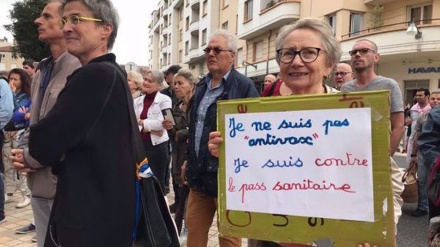 HAVAN
Je ne suis pas
"antivax"
Je suis contre
le pass sanitaire